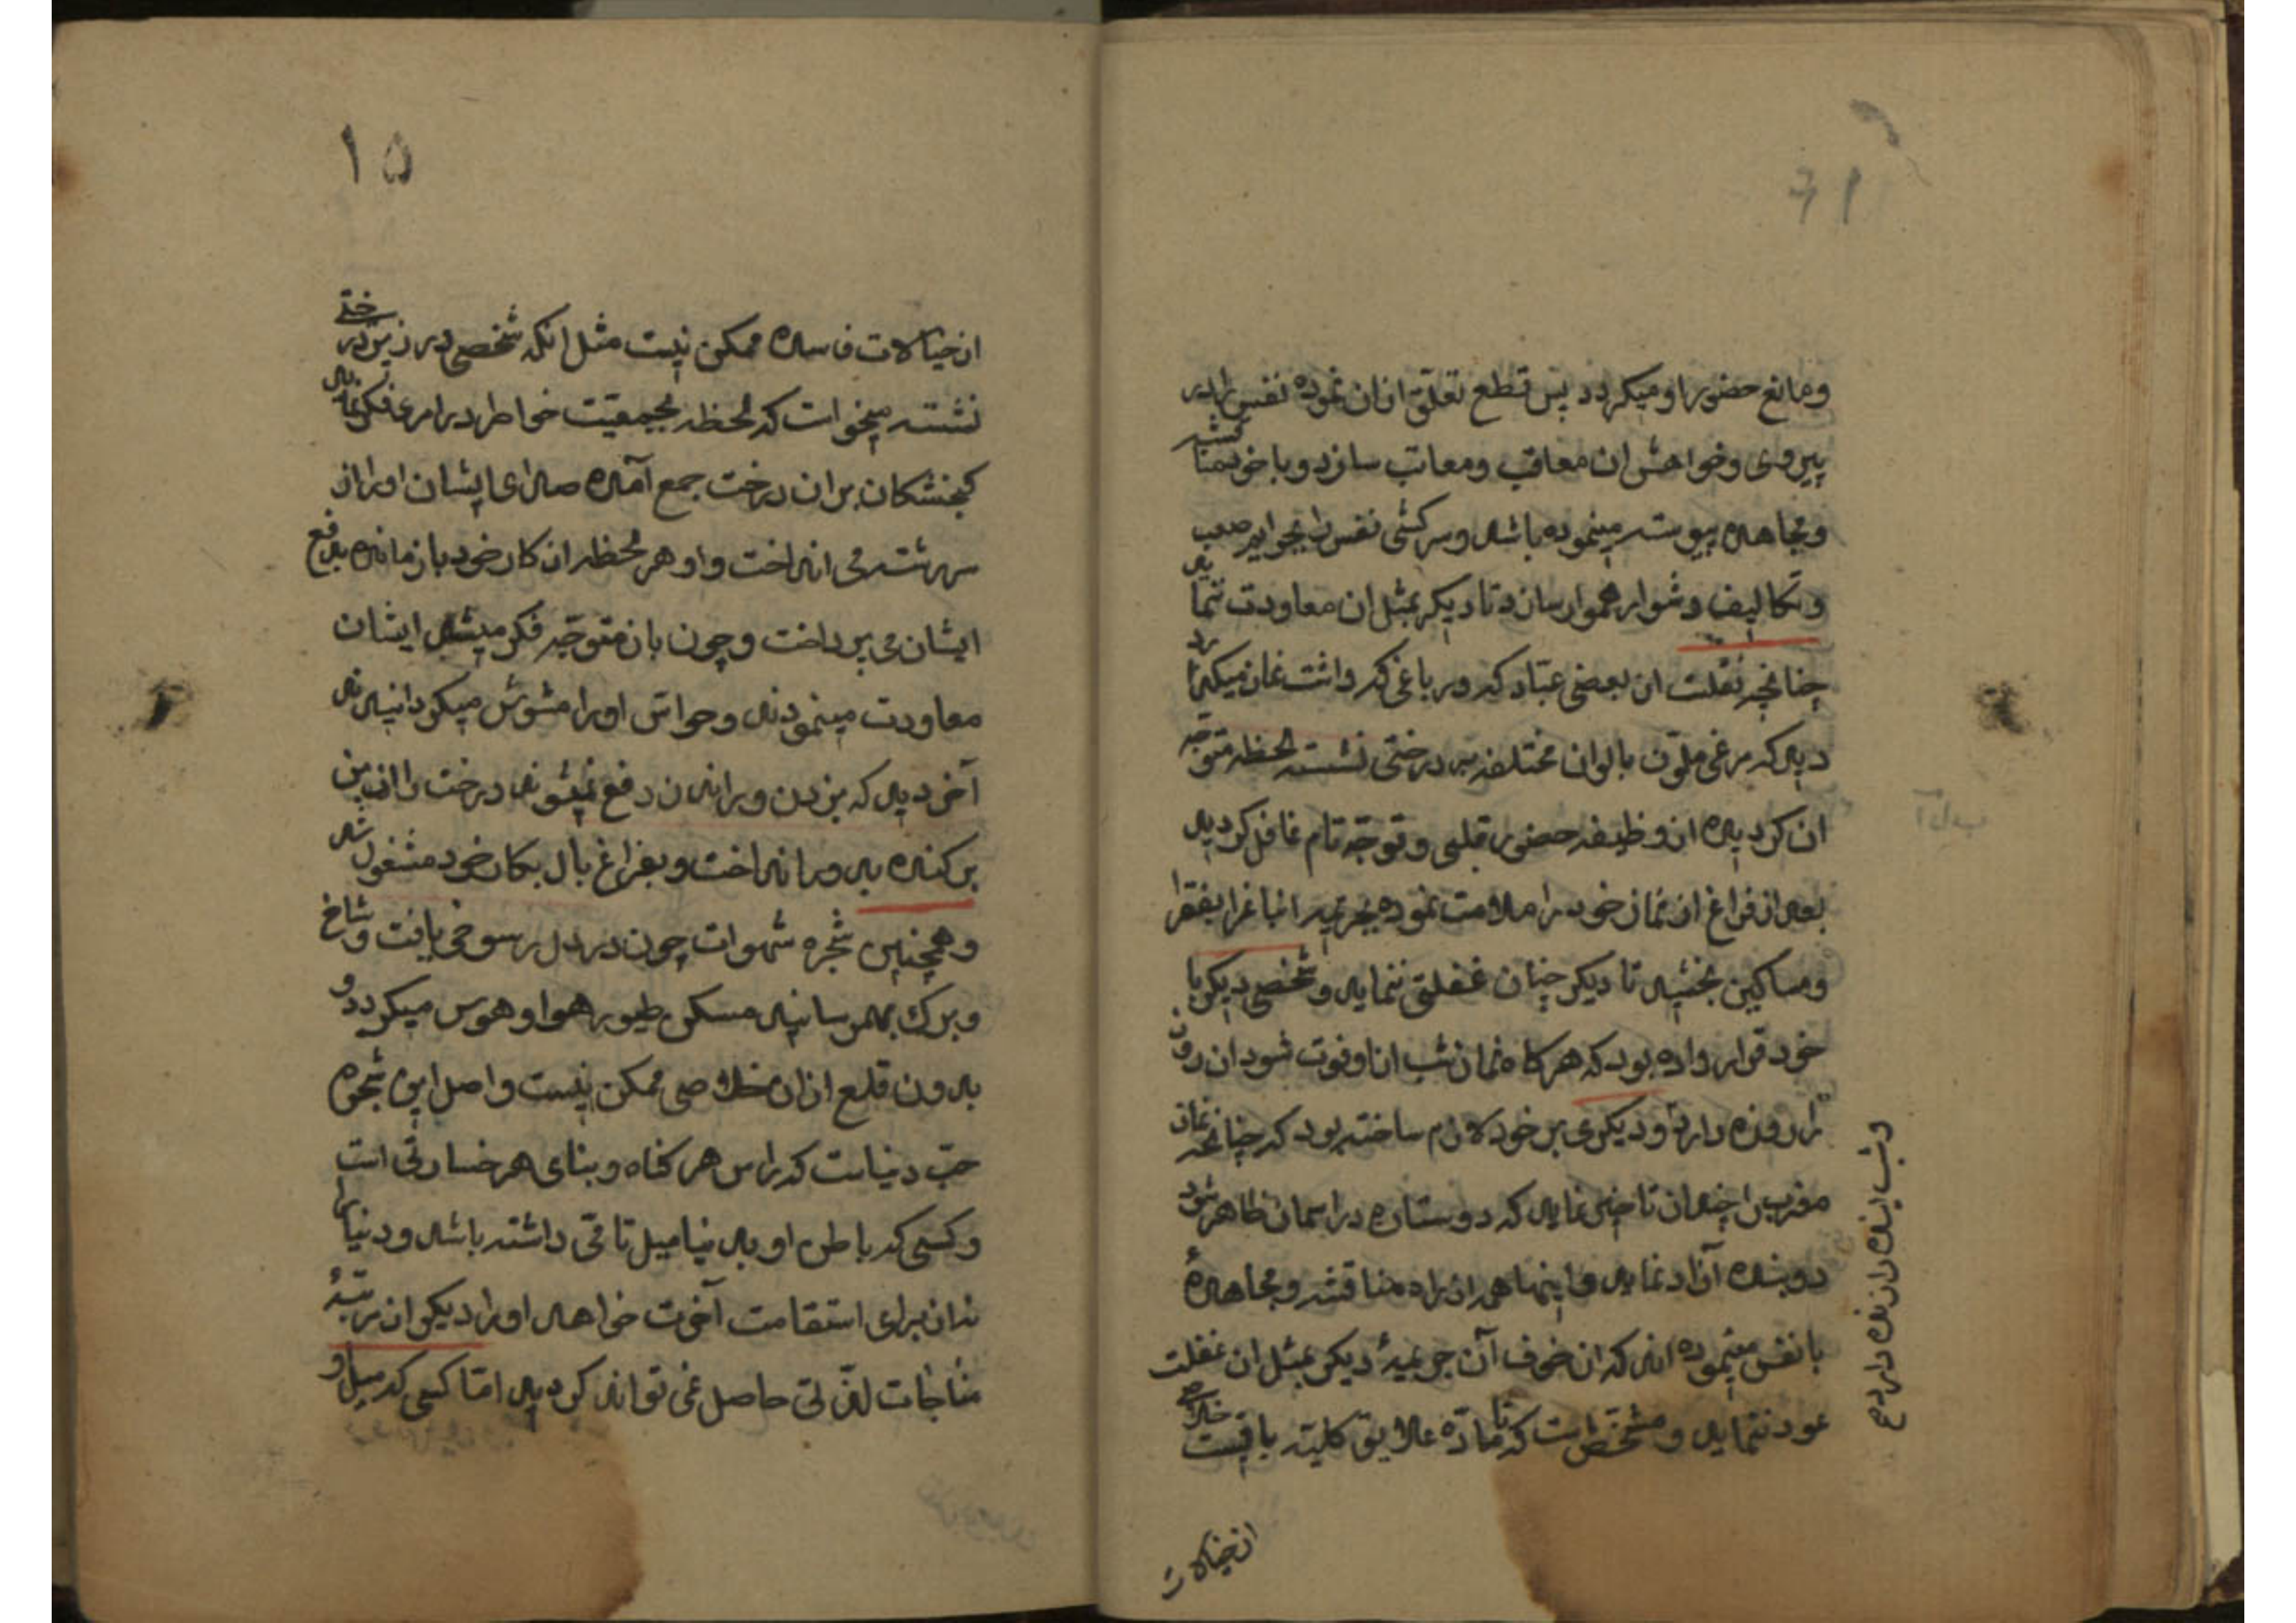 ومانع حضور او میکردد پس قطع تعلق ازان نموده نفس را در
پیروی وخواهش ان معاقب ومعاتب سازد و با خود مناقشه
ومجاهده پیوسته مینموده باشد وسرکشی نفس را بجوایر صعب
وتکالیف دشوار هموار سازد تا دیکر بمثل ان معاودت ننماید
چنانچه نقلست از بعضی عباد که در باغی که داشت نماز میکرد
دید که مرغی ملون بالوان مختلفه بر درختی نشسته لحظه متوجه
ان کردیده از وظیفه حضور قلبی و توجه تام غافل کردید
بعد از فراغ از نماز خود را ملامت نموده بجریمه ان باغ را بفقرا
ومساکین بخشید تا دیکر چنان غفلتی ننماید و شخصی دیکر با
خود قرار داده بود که هر کاه نماز شب از او فوت شود ان روز
را روزه دارد و دیکری بر خود لازم ساخته بود که چنانچه نماز
مغرب را چندان تاخیر نماید که دو ستاره در اسمان ظاهر شود
دو بنده آزاد نماید و اینها همه از راه مناقشه و مجاهدهٔ
با نفس مینموده اند که از خوف آن جریمهٔ دیکر بمثل ان غفلت
عود ننماید و مشخص است که تا مادّه علایق کلیة باقیست خلاصی
از خیالات
۱۵
از خیالات فاسده ممکن نیست مثل انکه شخصی در زیر درختی
نشسته میخواست که لحظه بجمعیت خواطر در امری فکر نماید
کنجشکان بران درخت جمع آمده صدای ایشان او را از
سررشته می انداخت و او هر لحظه از کار خود باز مانده بدفع
ایشان می پرداخت و چون بان متوجه فکر میشد ایشان
معاودت مینمودند و حواس او را مشوش میکردانیدند
آخر دید که بزدن و راندن دفع نمیشوند درخت را از بن
برکنده بدور انداخت و بفراغ بال بکار خود مشغول شد
و همچنین شجره شهوات چون در دل رسوخی یافت و شاخ
و برک بهمرسانید مسکن طیور هوا و هوس میکردد و
بدون قلع ازان خلاصی ممکن نیست و اصل این شجره
حب دنیاست که راس هر کناه و بنای هر خسارتی است
و کسی که باطن او بدنیا میل تامی داشته باشد و دنیا را
نه از برای استقامت آخرت خواهد او را دیکر از مرتبهٔ
مناجات لذتی حاصل نمی تواند کردید اما کسی که میل او